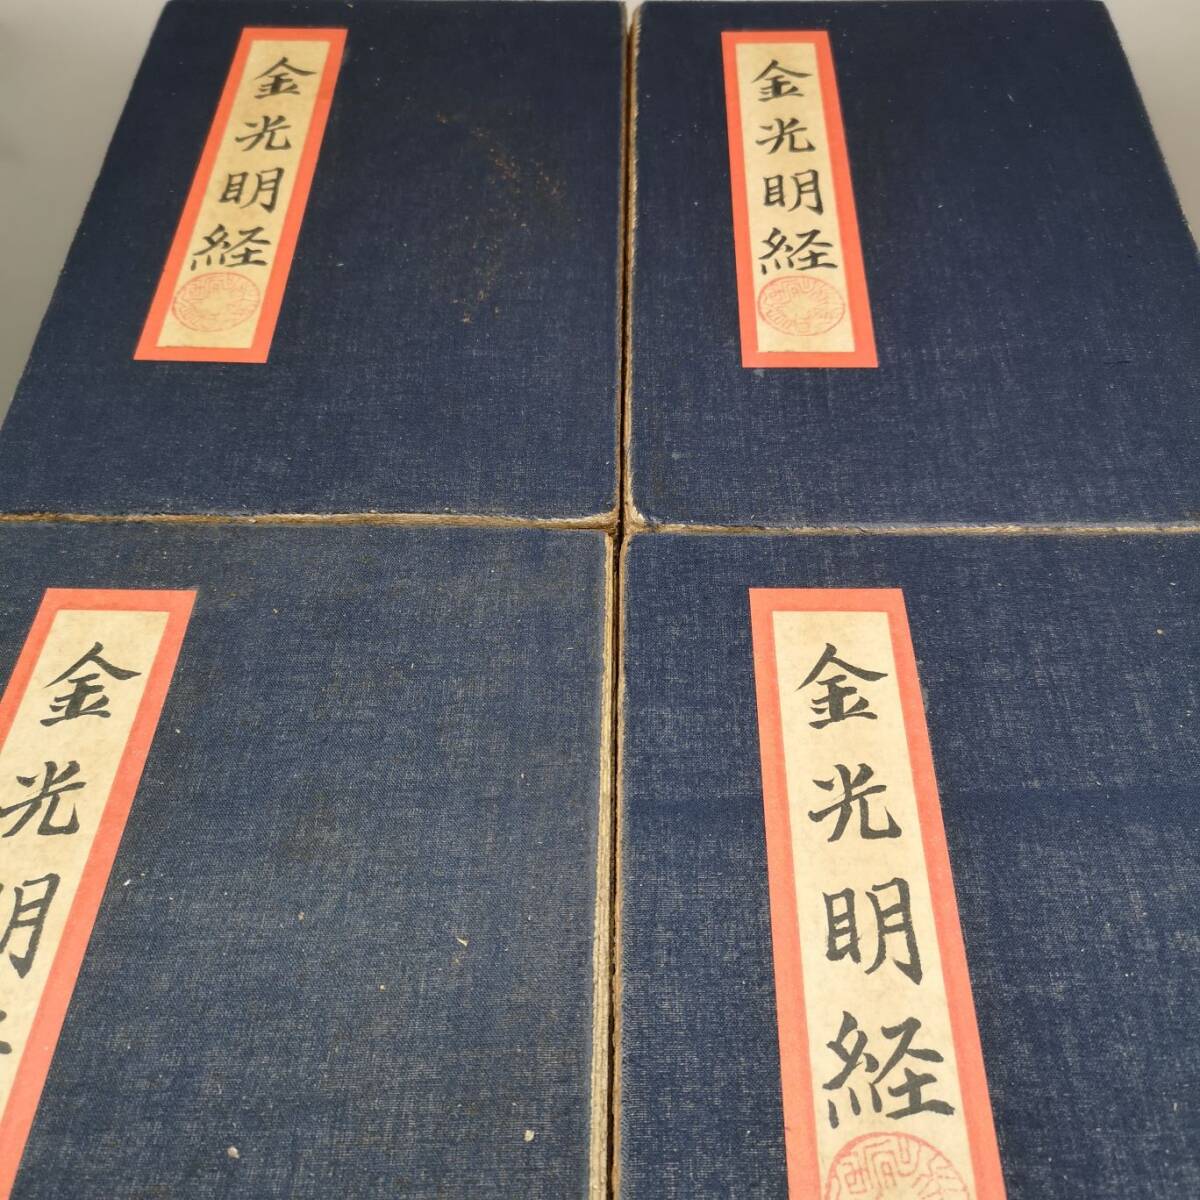 金光明経
金光明経
金光明
金光明経